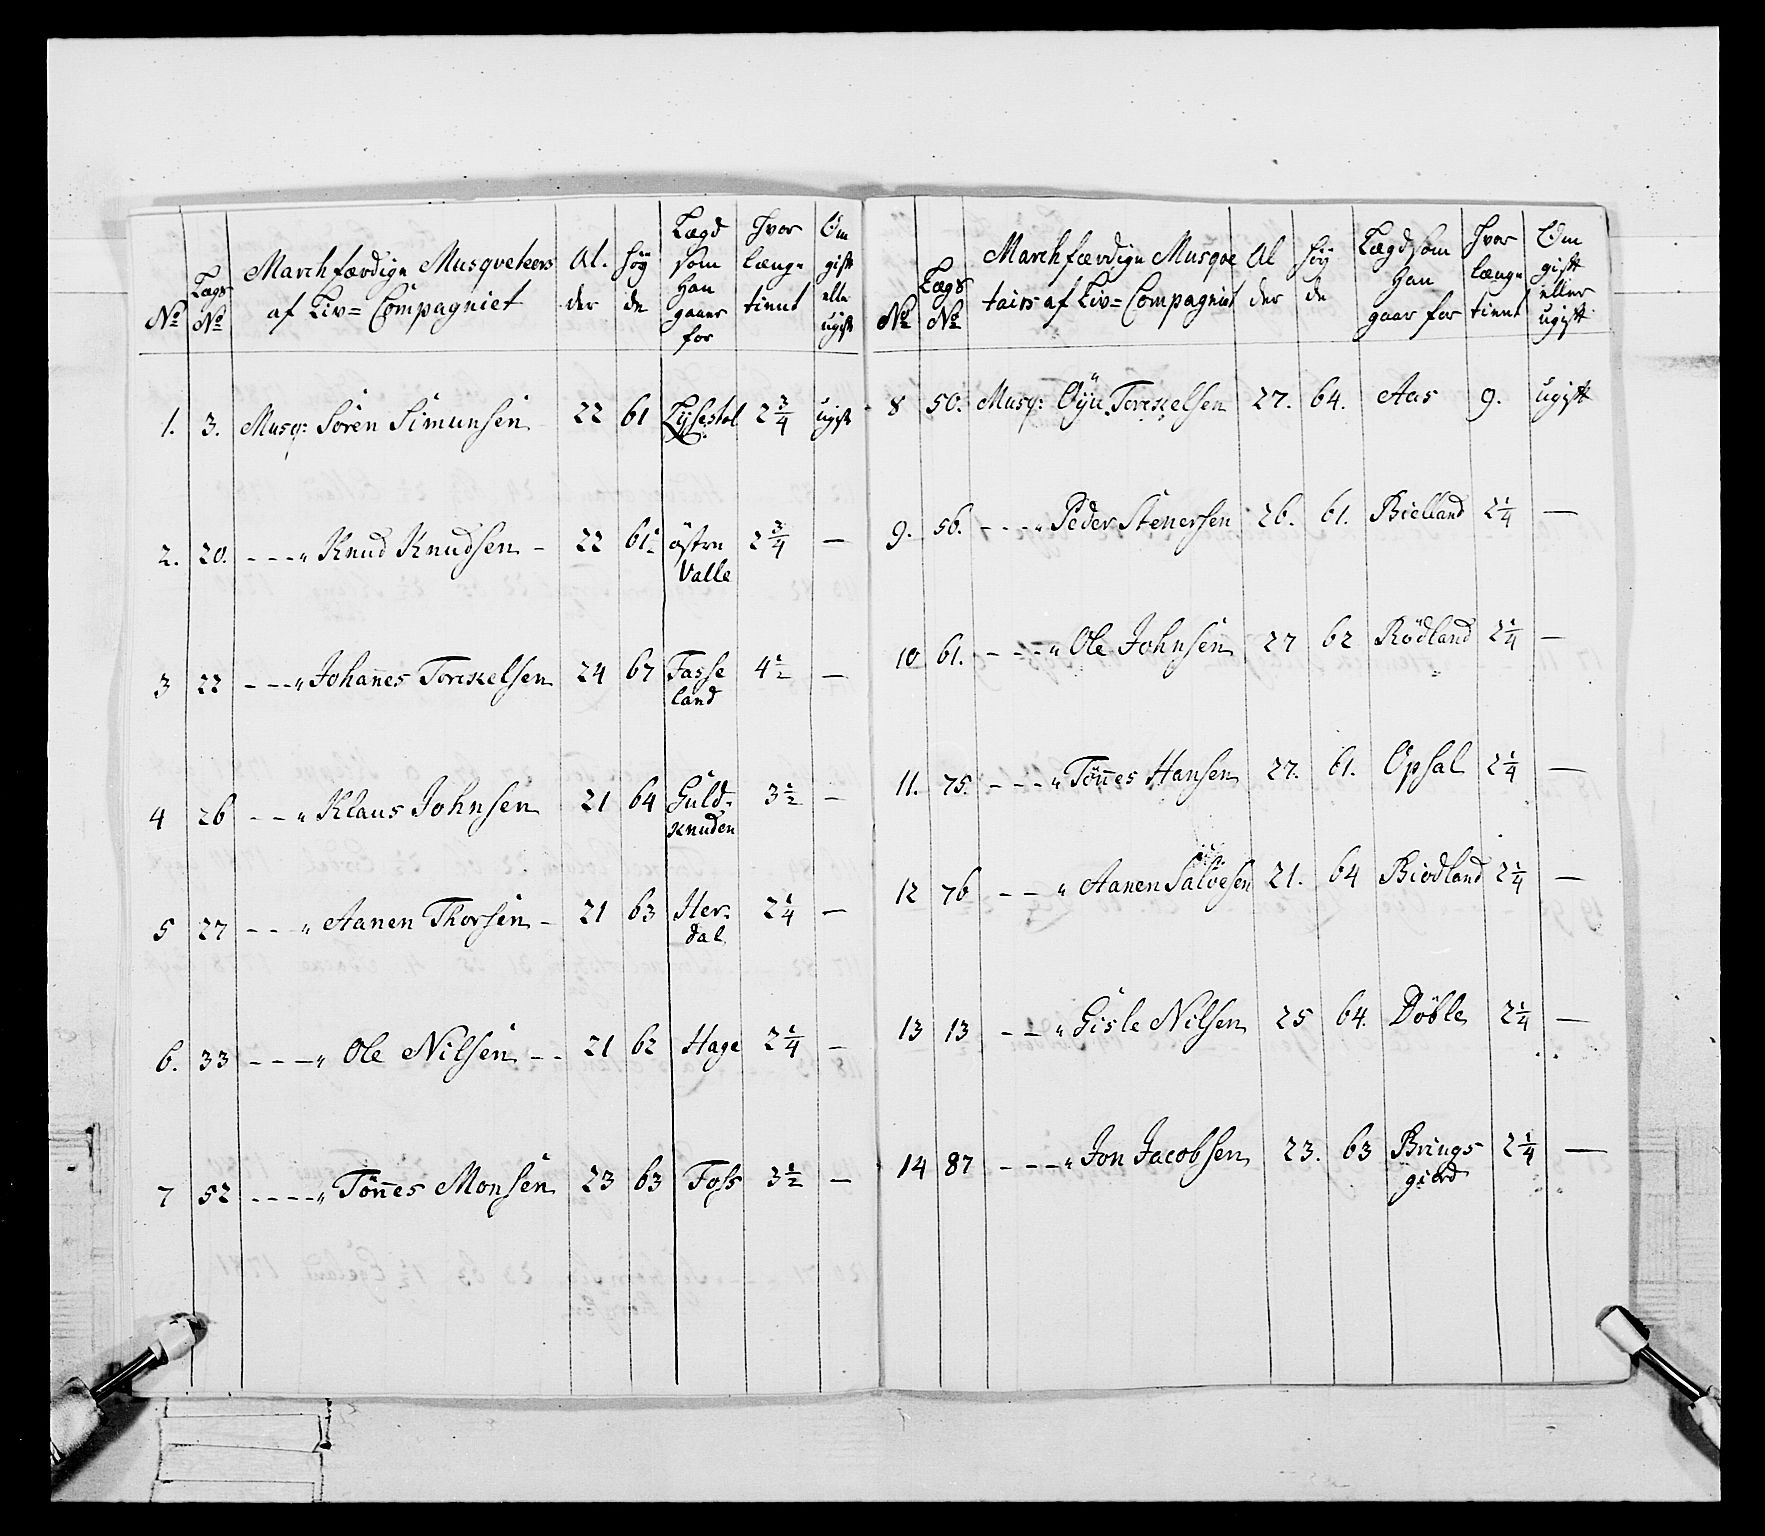 No | Lægs No | Marchfærdige Musqveteers af Liv=Compagniet | Al. der | Høy de | Lægd som Han gaaer for | Hvor længe tient | Om gift elle ugift
1. | 3. | Musq: Sören Simunsen | 22 | 61 | Lÿsestöl | 2 3/4 | ugift
2. | 20. | - - - " Knud Knudsen - | 22 | 61 1/2 | östre Valle | 2 3/4 | —
3 | 22 | - - - " Johannes Torkelsen | 24 | 67 | Fasse land | 4 1/2 | —
4 | 26 | - - " Klaus Johnsen | 21 | 64 | Guld= knuden | 3 1/2 | —
5 | 27 | - - " Aanen Thorsen - | 21 | 63 | Her= dal | 2 1/4 | —
6. | 33 | - - - " Ole Nilsen - - | 21 | 62 | Hage | 2 1/4 | —
7 | 52 | - - - - " Tönnes Monsen | 23 | 63 | Foss | 3 1/2 | —
No | Lægs No | Marchfærdige Musqve tairs af Liv=Compagniet | Al der | Høy de | Lægd som Han gaar for | Hvor længe tient | Om gift eller ugift
8 | 50. | Musq: Öÿu Torkelsen | 27. | 64. | Aas | 9. | ugift
9. | 56. | - - - " Peder Stenersen | 26. | 61. | Bielland | 2 1/4 | —
10 | 61. | - - - " Ole Johnsen | 27 | 62 | Rödland | 2 1/4 | —
11. | 75. | - - - " Tönnes Hansen | 27. | 61. | Opsal | 2 1/4 | —
12 | 76 | - - " Aanen Salvesen | 21. | 64 | Biodland | 2 1/4 | —
13 | 13 | - - " Gisle Nilsen | 25 | 64. | Döble | 2 1/4 | —
14 | 87 | - - - " Jon Jacobsen | 23. | 63 | Brings giord | 2 1/4 | —